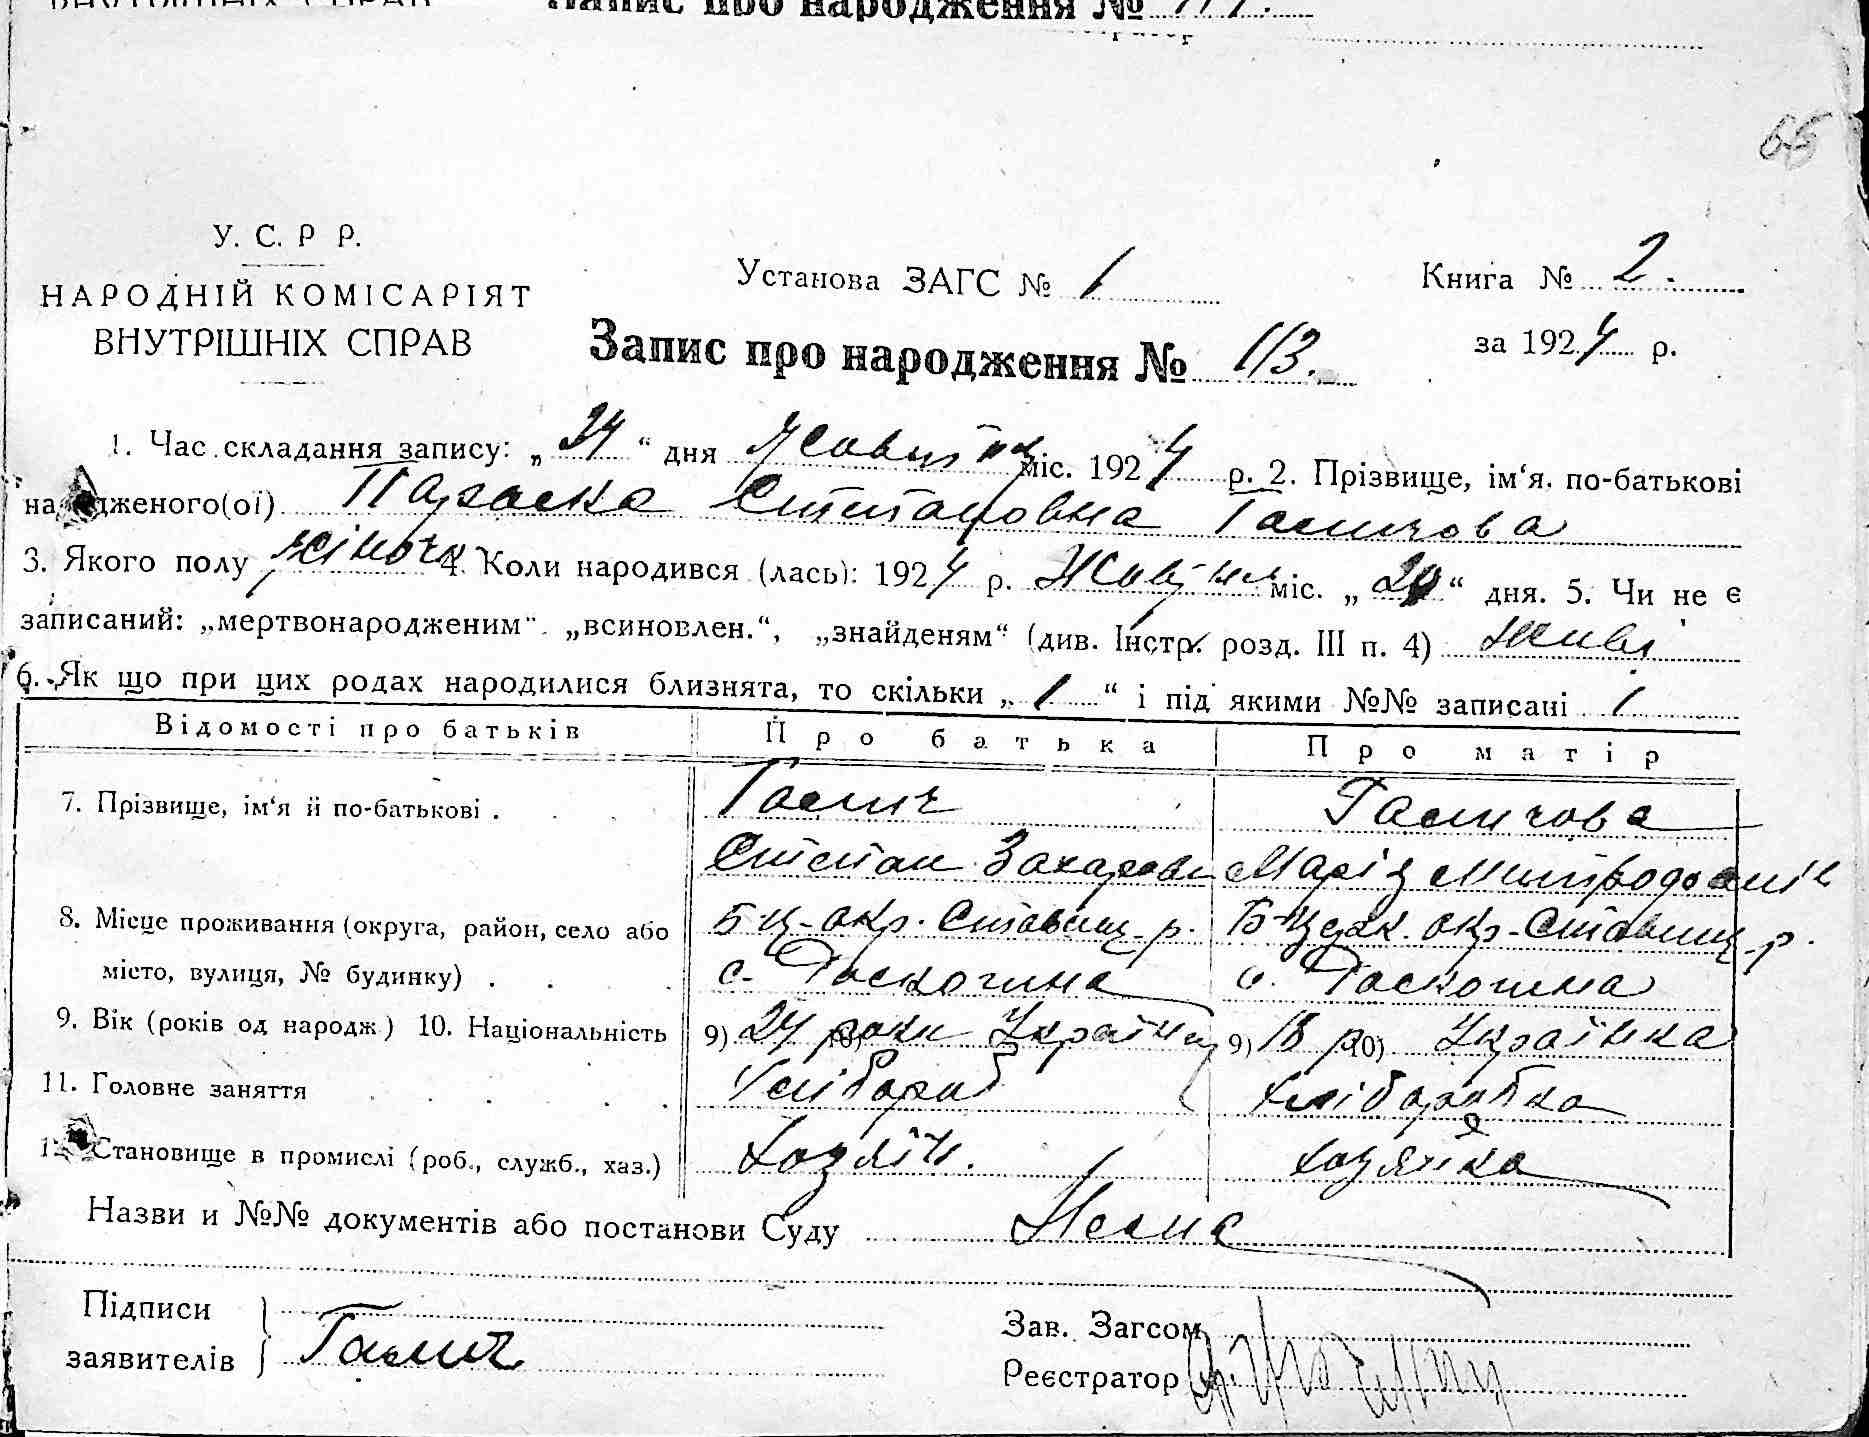 Запис про народження №
65
У. С. Р Р.
НАРОДНІЙ КОМІСАРІЯТ
ВНУТРІШНІХ СПРАВ
Установа ЗАГС № 1
Книга № 2.
Запис про народження № 113.
за 1924 р.
1. Час складання запису: „24“ дня Жовтня міс. 1924 р. 2. Прізвище, ім‘я, по-батькові
народженого(ої) Параска Степановна Галичова
3. Якого полу жіноч. 4. Коли народився (лась): 1924 р. Жовтня міс. „20“ дня. 5. Чи не є
записаний: „мертвонародженим“, „всиновлен.“, „знайденям“ (див. Інстр. розд. III п. 4) живі
6. Як що при цих родах народилися близнята, то скільки „1“ і під якими №№ записані 1
Відомості про батьків Про батька Про матір
7. Прізвище, ім‘я й по-батькові . Галич Галичова
Степан Захарови Марія
8. Місце проживання (округа, район, село або Б-ц-окр. Ставищ-р. Б-Церк. окр-Ставищ-р.
місто, вулиця, № будинку) . с. Роскошна с. Роскошна
9. Вік (років од народж) 10. Національність 9) 24 роки 10) Українец 9) 18 р 10) Українка
11. Головне заняття Хлібороб хліборобка
12. Становище в промислі (роб., служб., хаз.) Хозяїн. хозяйка
Назви и №№ документів або постанови Суду Нема
Підписи
заявителів Галич
Зав. Загсом
Реєстратор